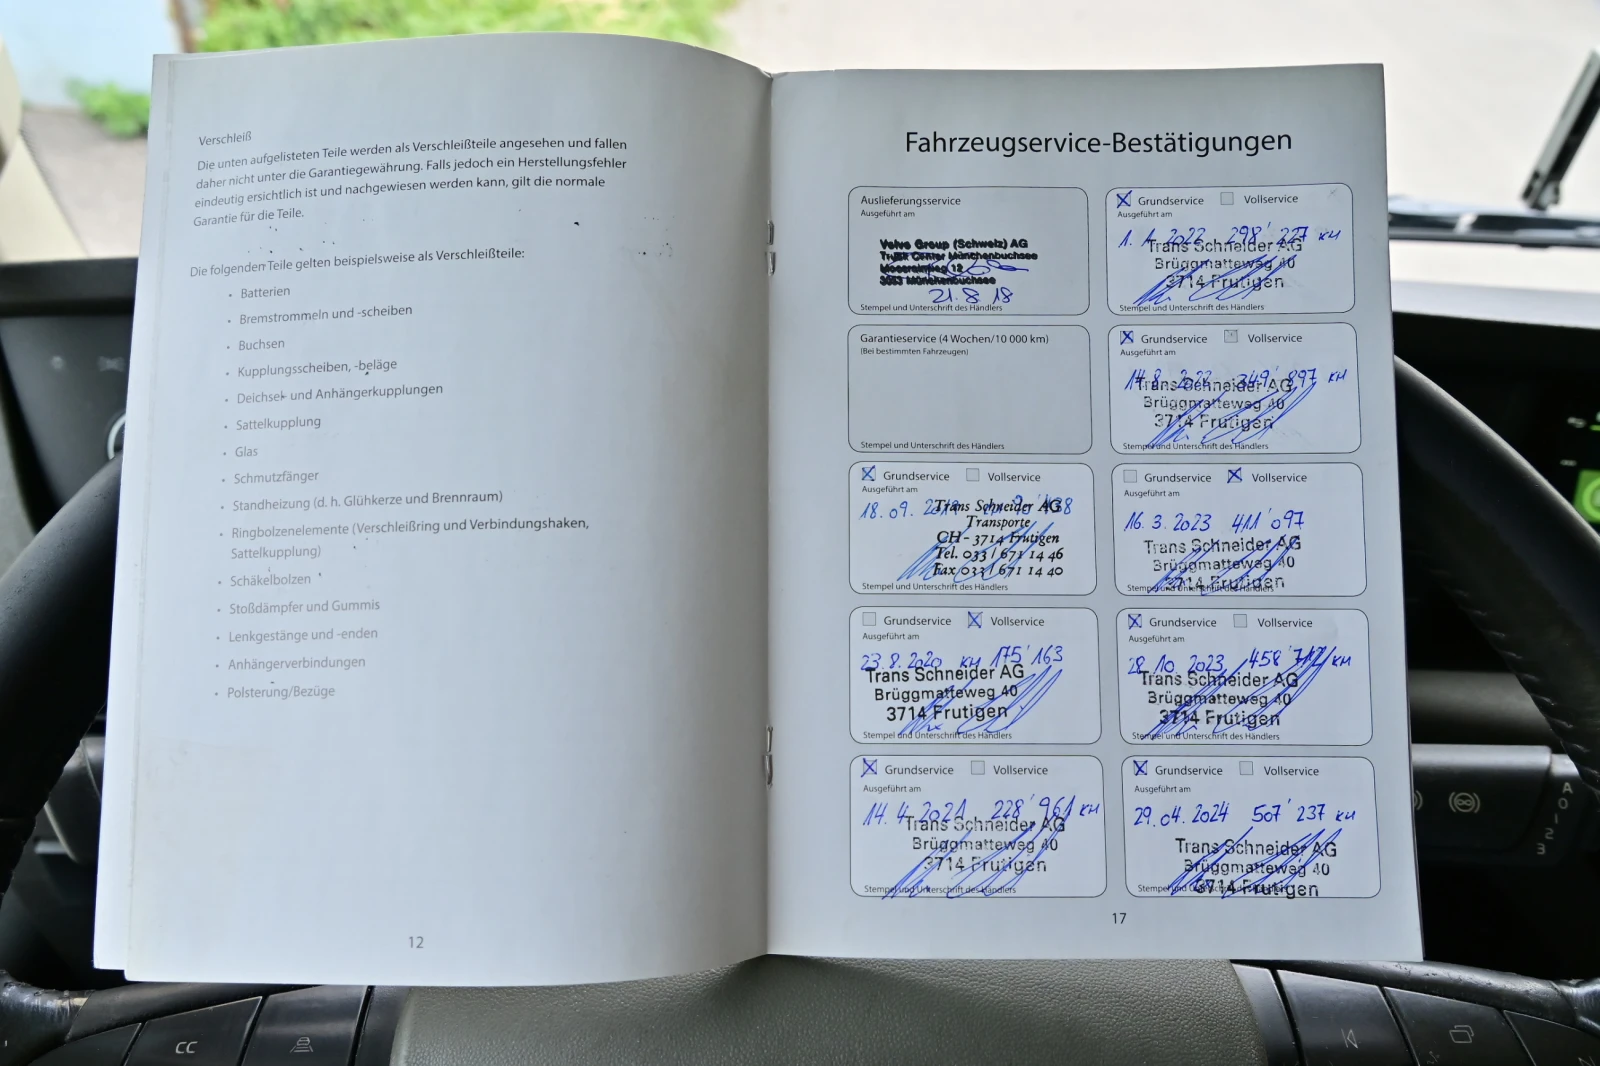 Verschleiß
Die unten aufgelisteten Teile werden als Verschleißteile angesehen und fallen
daher nicht unter die Garantiegewährung. Falls jedoch ein Herstellungsfehler
eindeutig ersichtlich ist und nachgewiesen werden kann, gilt die normale
Garantie für die Teile.
Die folgenden Teile gelten beispielsweise als Verschleißteile:
• Batterien
• Bremstrommeln und -scheiben
• Buchsen
• Kupplungsscheiben, -beläge
• Deichsel- und Anhängerkupplungen
• Sattelkupplung
• Glas
• Schmutzfänger
• Standheizung (d. h. Glühkerze und Brennraum)
• Ringbolzenelemente (Verschleißring und Verbindungshaken,
Sattelkupplung)
• Schäkelbolzen
• Stoßdämpfer und Gummis
• Lenkgestänge und -enden
• Anhängerverbindungen
• Polsterung/Bezüge
12
Fahrzeugservice-Bestätigungen
Auslieferungsservice
Ausgeführt am
Volvo Group (Schweiz) AG
Truck Center Münchenbuchsee
12
3053 Münchenbuchsee
21. 8 18
Stempel und Unterschrift des Händlers
Garantieservice (4 Wochen/10 000 km)
(Bei bestimmten Fahrzeugen)
Stempel und Unterschrift des Händlers
Grundservice Vollservice
Ausgeführt am
18. 09.
Trans Schneider AG
Transporte
CH - 3714 Frutigen
Tel. 033 / 671 14 46
Fax 033 / 671 14 40
Stempel und Unterschrift des Händlers
Grundservice Vollservice
Ausgeführt am
23. 8. 2020 KM 175'163
Trans Schneider AG
Brüggmatteweg 40
3714 Frutigen
Stempel und Unterschrift des Händlers
Grundservice Vollservice
Ausgeführt am
14. 4. 2021 228'961 KM
Trans Schneider AG
Brüggmatteweg 40
3714 Frutigen
Stempel und Unterschrift des Händlers
Grundservice Vollservice
Ausgeführt am
1. 1. 2022 298'227 KM
Trans Schneider AG
Brüggmatteweg 40
3714 Frutigen
Stempel und Unterschrift des Händlers
Grundservice Vollservice
Ausgeführt am
14. 8. 2022 349'897 KM
Trans Schneider AG
Brüggmatteweg 40
3714 Frutigen
Stempel und Unterschrift des Händlers
Grundservice Vollservice
Ausgeführt am
16. 3. 2023 411'097
Trans Schneider AG
Brüggmatteweg 40
3714 Frutigen
Stempel und Unterschrift des Händlers
Grundservice Vollservice
Ausgeführt am
28. 10. 2023 458' KM
Trans Schneider AG
Brüggmatteweg 40
3714 Frutigen
Stempel und Unterschrift des Händlers
Grundservice Vollservice
Ausgeführt am
29. 04. 2024 507'237 KM
Trans Schneider AG
Brüggmatteweg 40
3714 Frutigen
Stempel und Unterschrift des Händlers
17
A
0
1
2
3
CC